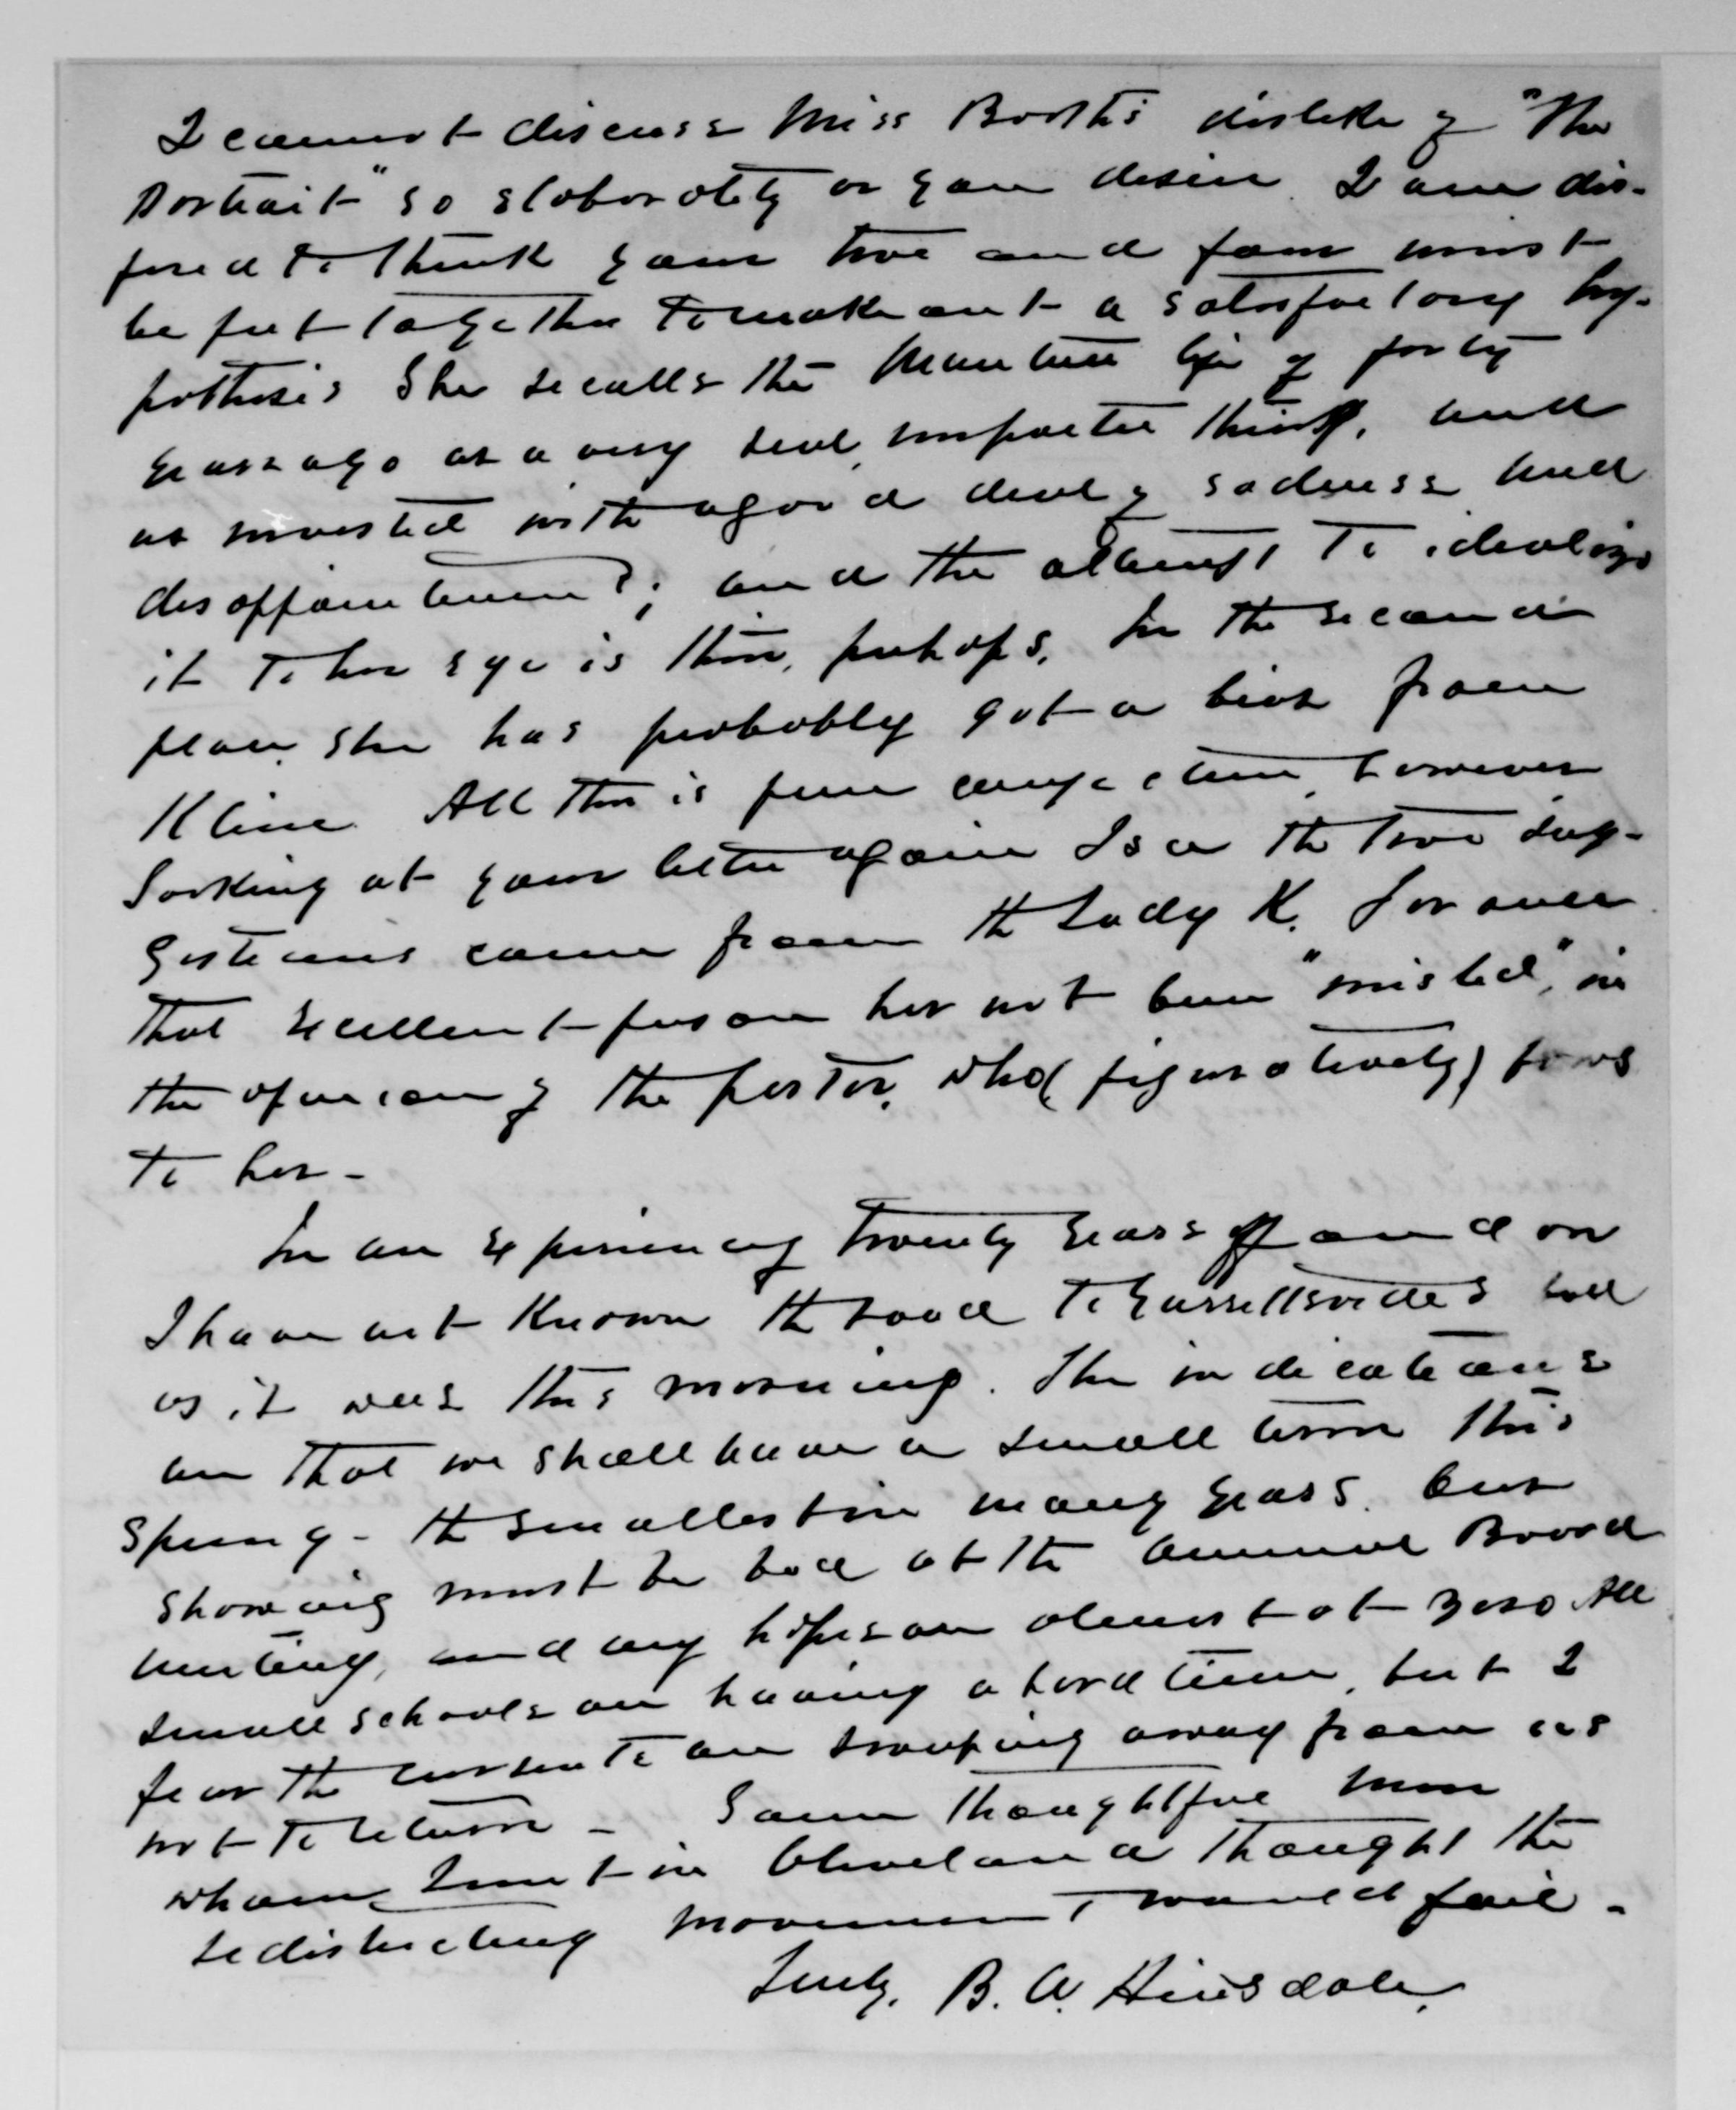 I cannot discuss Miss Booth's dislike of "The
Portrait" so elaborately as you desire. I am dis-
posed to think your two and four must
be put together to make out a satisfactory hy-
pothesis She recalls the Mentor life of forty
years ago as a very real, imperfect thing, and
as invested with a good deal of sadness and
disappointment; and the attempt to idealize
it to her eye is thin, perhaps. In the second
place, she has probably got a bias from
Kline. All this is pure conjecture, however
Looking at your letter again I see the two sug-
gestions came from the Lady K. For once
that excellent person has not been "misled", in
the opinion of the pastor, who (figuratively) bows
to her -
In an experience of twenty years off and on
I have not known the road to Garrettsville so bad
as it was this morning. The indications
are that we shall have a small term this
Spring - the smallest in many years. Our
showing must be bad at the Annual Board
meeting, and my hopes are almost at zero All
small schools are having a hard time, but I
fear the currents are sweeping away from us
not to return - Some thoughtful men
whom I met in Cleveland thought the
redistricting movement would fail -
Truly, B. A. Hinsdale.